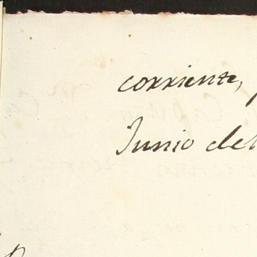 corriente,
Junio del